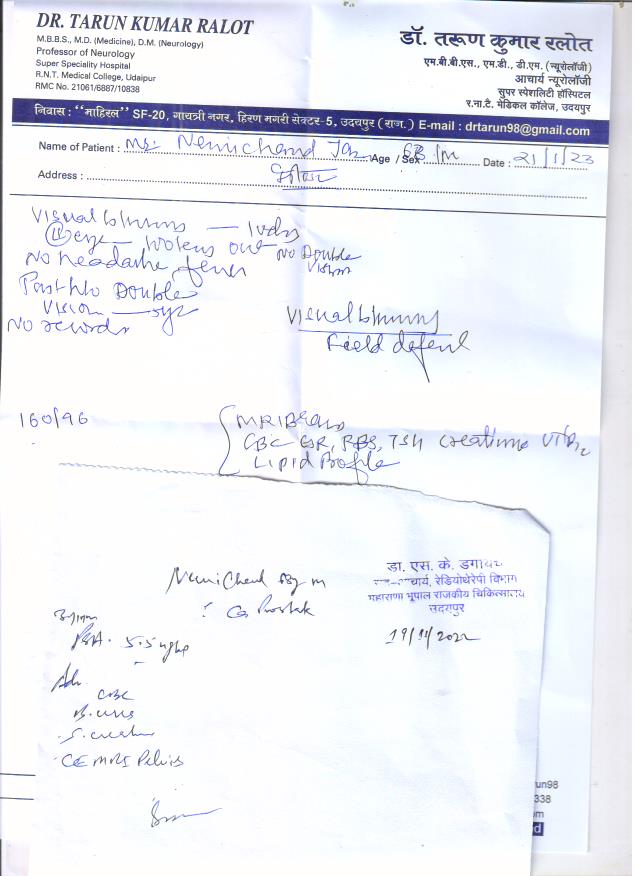 DR. TARUN KUMAR RALOT
M.B.B.S., M.D. (Medicine), D.M. (Neurology)
Professor of Neurology
Super Speciality Hospital
R.N.T. Medical College, Udaipur
RMC No. 21061/6887/10838
डॉ. तरूण कुमार रलोत
एम.बी.बी.एस., एम.डी., डी.एम. (न्यूरोलॉजी)
आचार्य न्यूरोलॉजी
सुपर स्पेशलिटी हॉस्पिटल
र.ना.टै. मेडिकल कॉलेज, उदयपुर
निवास : "माहिरल" SF-20, गायत्री नगर, हिरण मगरी सेक्टर-5, उदयपुर (राज.) E-mail : drtarun98@gmail.com
Name of Patient : Mr. Nemichand Age / Sex 68 / M Date : 21/1/23
Address :
Visual
eye No Double
No headache, fever Vision
Past h/o Double
Vision
No records
Visual
Field
160/96
MRI Brain
CBC ESR, RBS, TSH Creatinine Vit B12
Lipid Profile
डा. एस. के.
आचार्य, रेडियोथेरेपी विभाग
महाराणा भूपाल राजकीय चिकित्सालय
उदयपुर
Nemichand M
? Ca Prostate
19/11/2022
PSA. 5.5
Adv
CBC
B. urea
S. creatinine
CE MRI Pelvis
un98
338
m
d